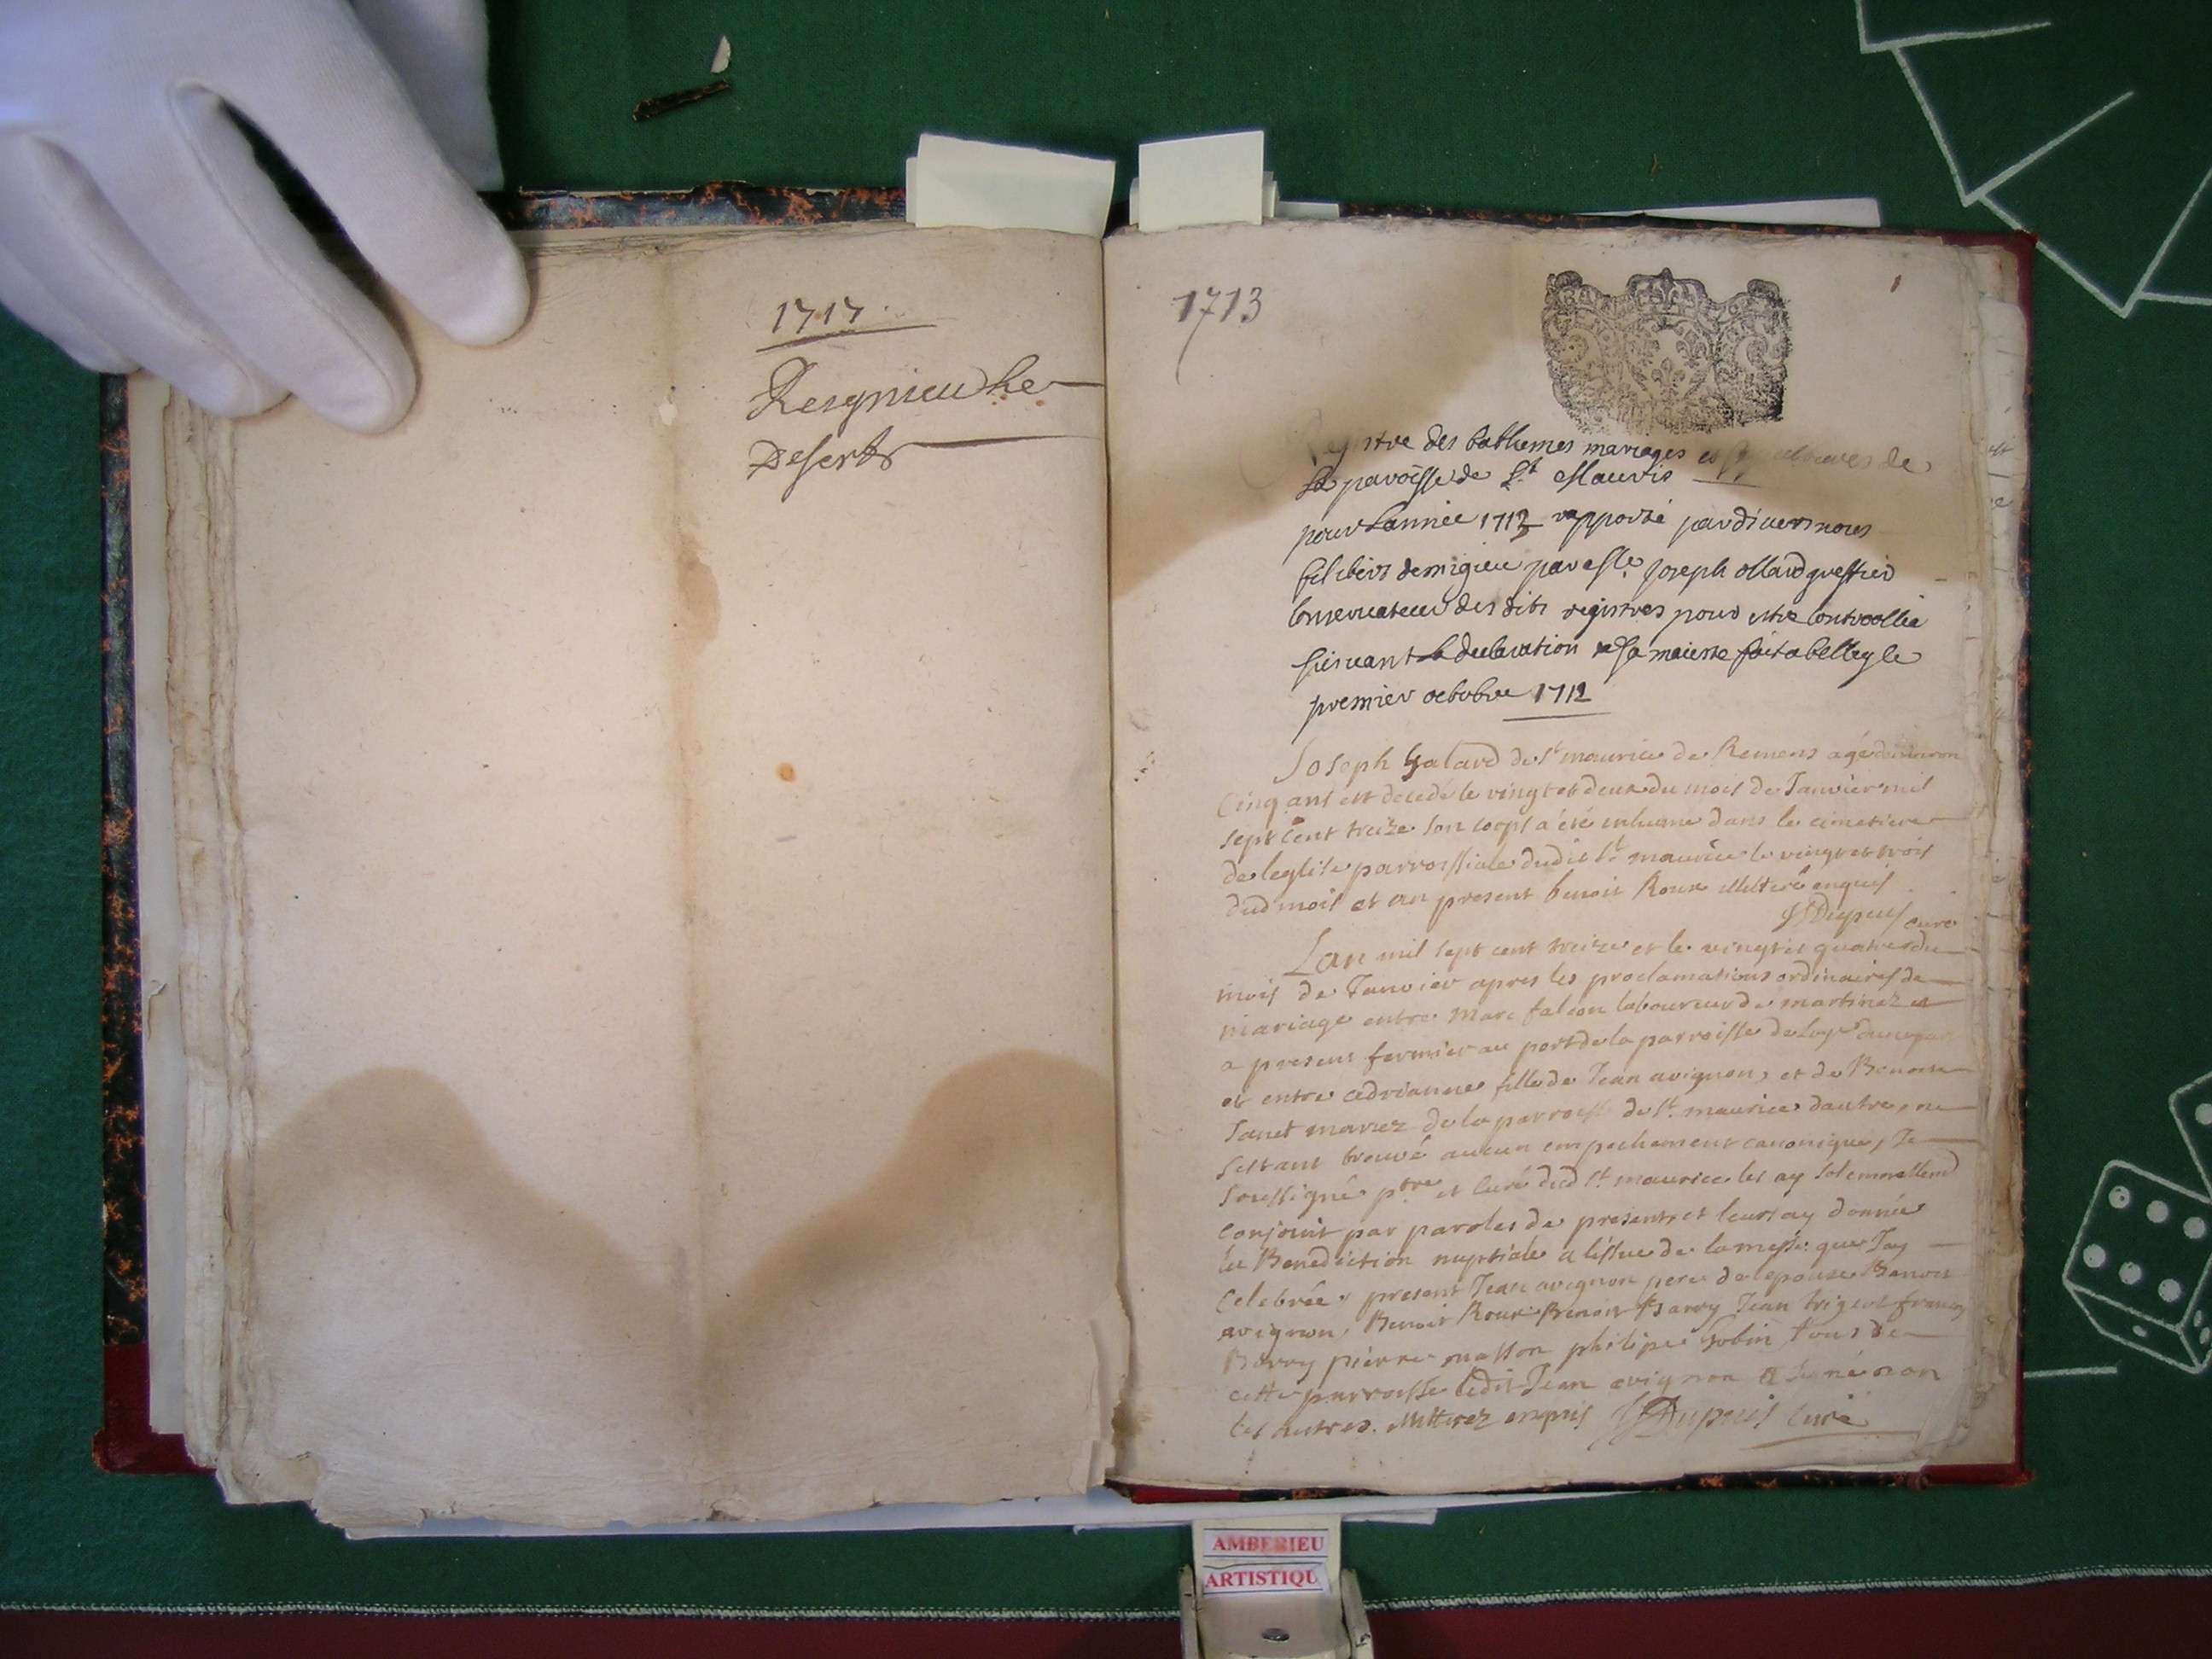 1717
Desert
1713
1
Registre des bathemes mariages et de
la paroisse de St Mauris
pour Lannée 1713 rapporté par devers nous
par Mre Joseph ollard greffier
Conservateur des dits registres pour estre Controollé
suivant la declaration de sa maieste fait a belley le
premier octobre 1712
Joseph Galard de St maurice de Remens agé denviron
Cinq ans est decedé le vingt et deux du mois de Janvier mil
sept Cent treize son corps a été inhumé dans le cimetiere
de leglise parroissiale dudit St maurice le vingt et trois
dud mois et an present benoit Roux illiteré enquis
Dupuis curé
Lan mil sept cent treize et le vingt et quatre du
mois de Janvier apres les proclamations ordinaires de
mariage entre Marc falcon laboureur de martinaz et
a present fermier au port de la parroisse de Loye dune part
et entre adrianne fille de Jean avignon, et de Benoite
Janet mariez de la parroisse de St maurice dautre, ne
sestant trouvé aucun empechement canonique, Je
soussigné ptre et Curé dud St maurice les ay solemnellemt
conjoint par paroles de present, et leurs ay donnée
la Benediction nuptiale a lissue de la messe que Jay
Celebrée, present Jean avignon pere de lepouse Benoit
avignon, Benoit Roux Benoit Jean francois
pierre masson philipe Gobin tous de
cette parroisse ledit Jean avignon a signé non
les autres. illiterez enquis Dupuis Curé
AMBERIEU
ARTISTIQU